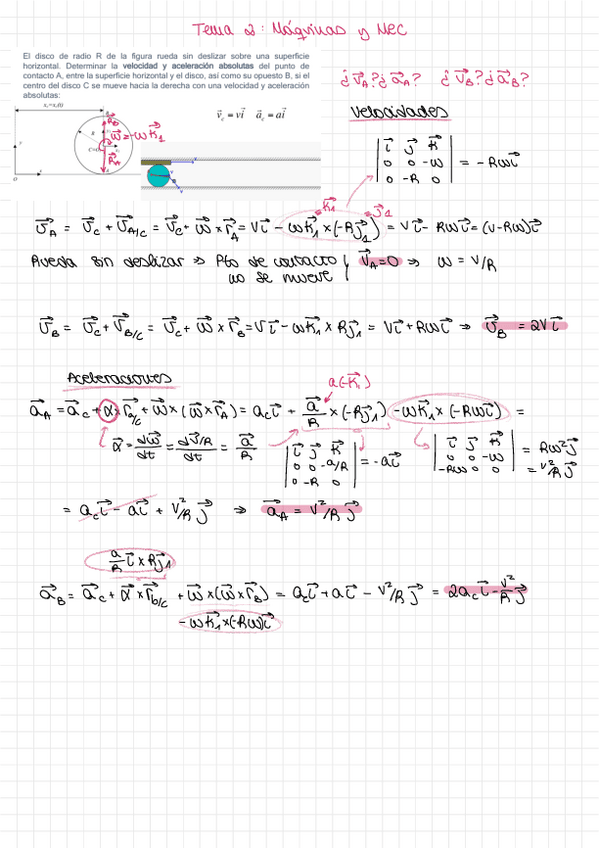 Tema 2: Máquinas y Mec
El disco de radio R de la figura rueda sin deslizar sobre una superficie
horizontal. Determinar la velocidad y aceleración absolutas del punto de
contacto A, entre la superficie horizontal y el disco, así como su opuesto B, si el
centro del disco C se mueve hacia la derecha con una velocidad y aceleración
absolutas:
¿v⃗A? ¿a⃗A? ¿v⃗B? ¿a⃗B?
v⃗c = vi⃗ a⃗c = ai⃗
ω⃗ = -ωk⃗1
Velocidades
| i⃗ j⃗ k⃗ |
| 0 0 -ω | = - Rωi⃗
| 0 -R 0 |
v⃗A = v⃗c + v⃗A/C = v⃗c + ω⃗ × r⃗A = vi⃗ - ωk⃗1 × (-Rj⃗1) = vi⃗ - Rωi⃗ = (v-Rω)i⃗
Rueda sin deslizar → Pto de contacto v⃗A = 0 ⇒ ω = v/R
no se mueve
v⃗B = v⃗c + v⃗B/C = v⃗c + ω⃗ × r⃗B = vi⃗ - ωk⃗1 × Rj⃗1 = vi⃗ + Rωi⃗ ⇒ v⃗B = 2vi⃗
Aceleraciones
a(-k⃗1)
a⃗A = a⃗c + α⃗ × r⃗a/c + ω⃗ × (ω⃗ × r⃗A) = aci⃗ + a⃗/R × (-Rj⃗1) - ωk⃗1 × (-Rωi⃗) =
α⃗ = dω⃗/dt = dv⃗/R/dt = a⃗/R
| i⃗ j⃗ k⃗ |
| 0 0 -a/R | = -ai⃗
| 0 -R 0 |
| i⃗ j⃗ k⃗ |
| 0 0 -ω | = Rω²j⃗
| -Rω 0 0 | = v²/R j⃗
= aci⃗ - ai⃗ + v²/R j⃗ ⇒ a⃗A = v²/R j⃗
a/R i⃗ × Rj⃗1
a⃗B = a⃗c + α⃗ × r⃗b/c + ω⃗ × (ω⃗ × r⃗B) = aci⃗ + ai⃗ - v²/R j⃗ = 2aci⃗ - v²/R j⃗
- ωk⃗1 × (-Rω)i⃗